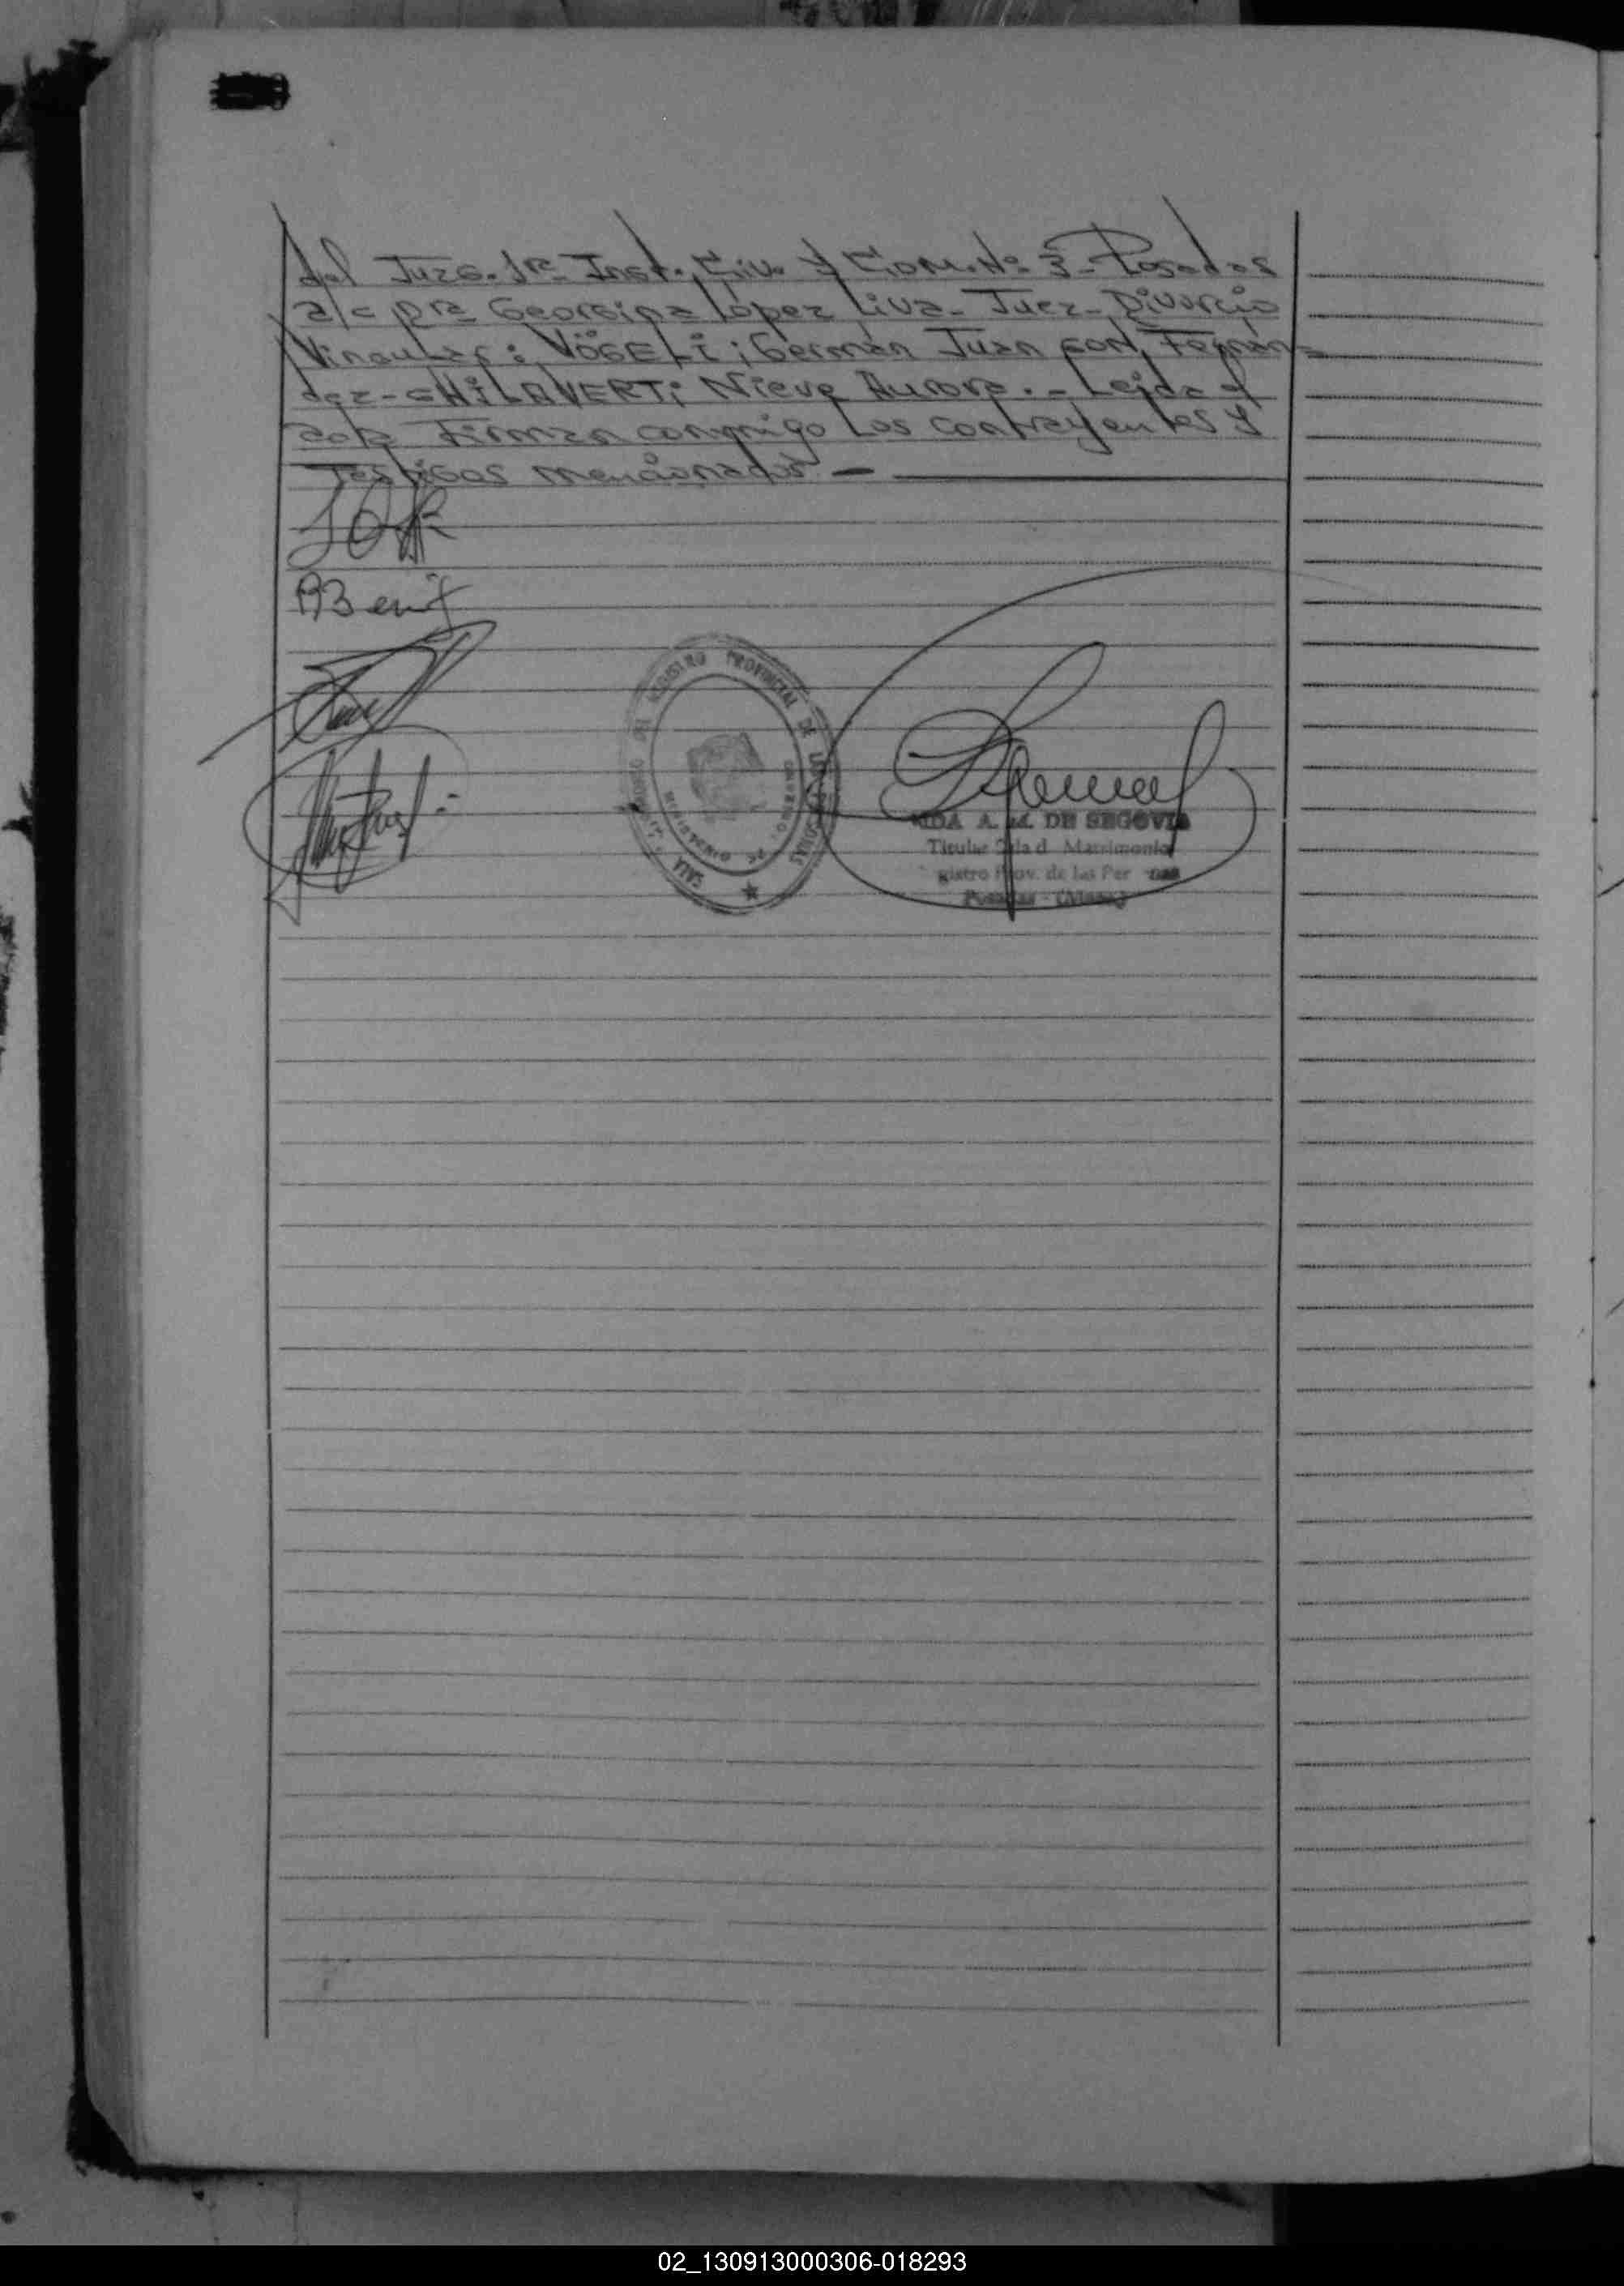 del Juzg. 1ra Inst. Civ. y Com. Nº 3- Posadas
a/c Dra Georgina López Liva- Juez- Divorcio
Vincular: VÖGELI; Germán Juan con Fernán=
dez-CHILAVERT; Nieve Aurora.- Leída el
acta firman conmigo los contrayentes y
Testigos mencionados.-
REGISTRO PROVINCIAL DE LAS PERSONAS
MINISTERIO DE GOBIERNO
A. M. DE SEGOVIA
Titular Matrimonio
Prov. de las
02_130913000306-018293